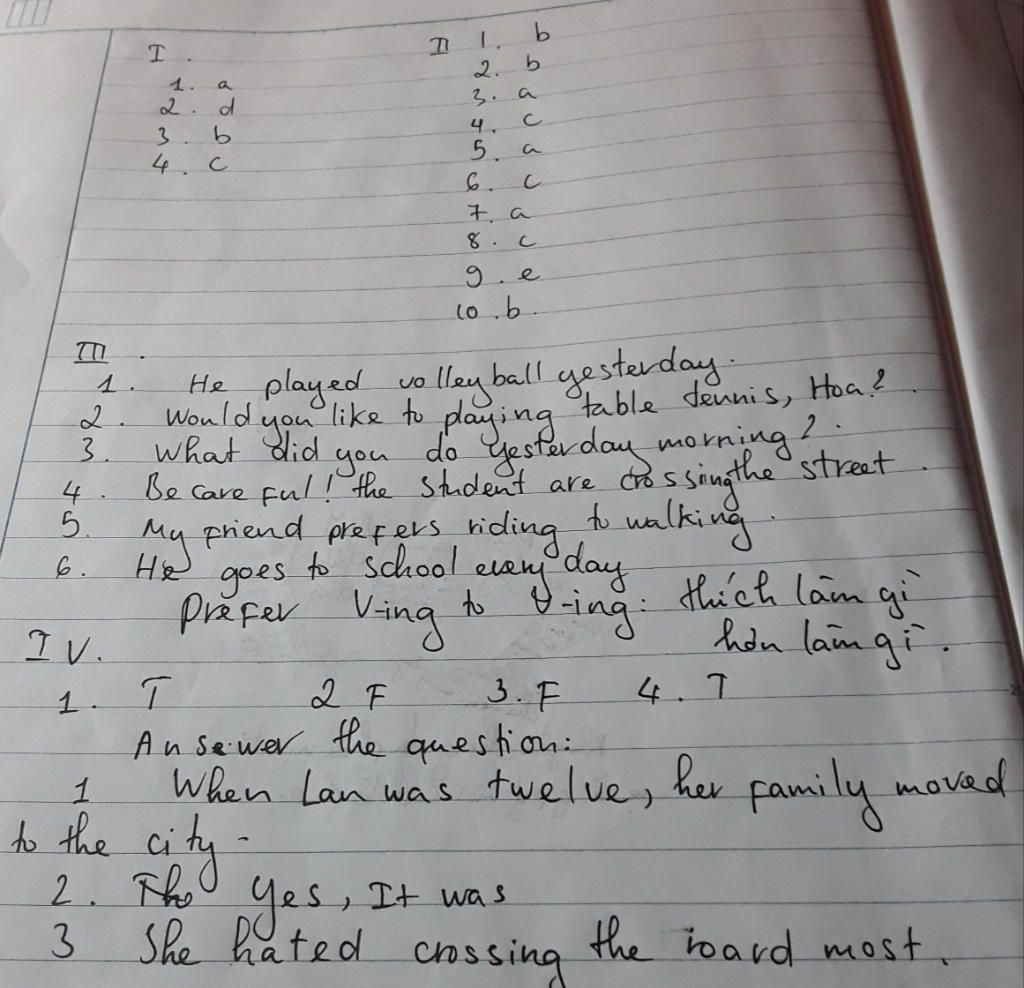 I.
1. a
2. d
3. b
4. c
II 1. b
2. b
3. a
4. c
5. a
6. c
7. a
8. c
9. e
10. b.
III.
1. He played volleyball yesterday.
2. Would you like to playing table tennis, Hoa?.
3. What did you do yesterday morning?.
4. Be care ful! the student are crossing the street.
5. My friend prefers riding to walking.
6. He goes to school every day
Prefer V-ing to V-ing: thích làm gì
hơn làm gì.
IV.
1. T 2 F 3. F 4. T
Ansewer the question:
1 When Lan was twelve, her family moved
to the city -
2. Yes, It was
3 She hated crossing the roard most.